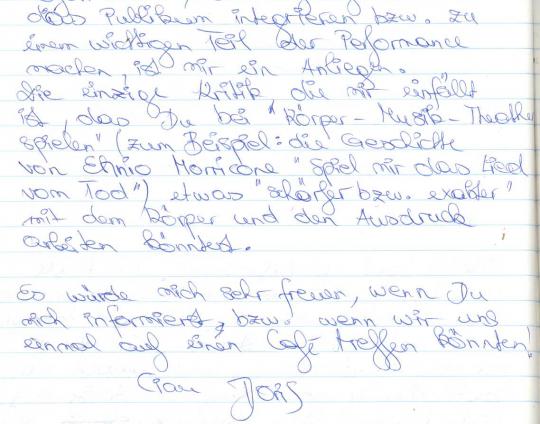 das Publikum integrieren bzw. zu
einem wichtigen Teil der Performance
machen, ist mir ein Anliegen.
Die einzige Kritik die mir einfällt
ist, das Du bei "Körper-Musik-Theather
spielen" (zum Beispiel: die Geschichte
von Ennio Morricone "Spiel mir das Lied
vom Tod") etwas "schärfer bzw. exakter"
mit dem Körper und den Ausdruck
arbeiten könntest.
Es würde mich sehr freuen, wenn Du
mich informierst, bzw. wenn wir uns
einmal auf einen Café treffen könnten!
Ciau Doris